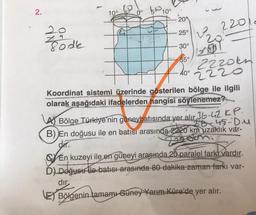 2.
10° 0° 10°
20°
25°
30°
35°
40°
20
80dk
2220
2220km
2220
Koordinat sistemi üzerinde gösterilen bölge ile ilgili
olarak aşağıdaki ifadelerden hangisi söylenemez?
A) Bölge Türkiye'nin güneybatısında yer alır. 36-42 KP
B) En doğusu ile en batısı arasında 2220 km uzaklık var-
dır.
C) En kuzeyi ile en güneyi arasında 20 paralel farkı vardır.
D) Doğusu ile batısı arasında 80 dakika zaman farkı var-
dır.
E) Bölgenin tamamı Güney Yarım Küre'de yer alır.